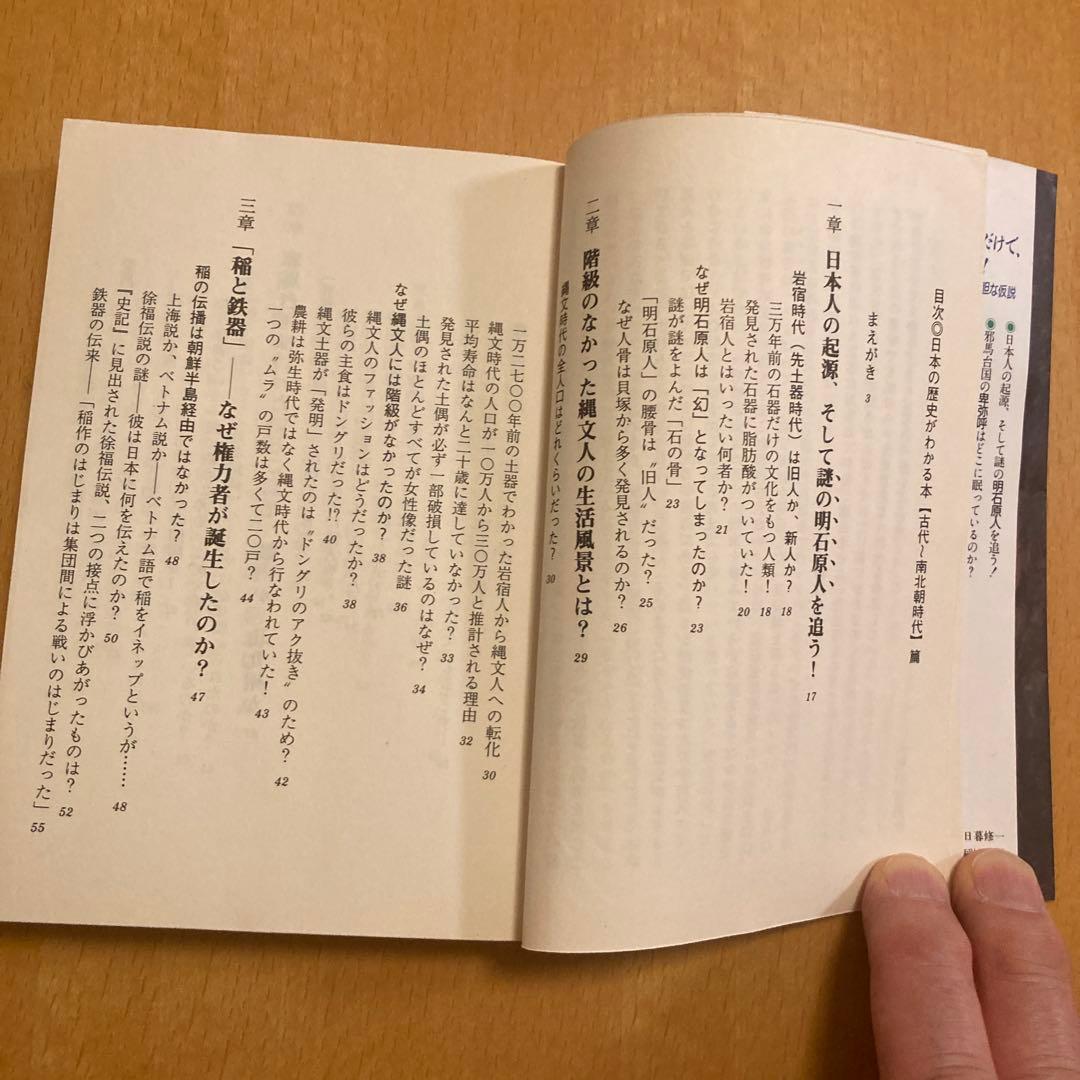 だけで、
！
胆な仮説
●日本人の起源、そして謎の明石原人を追う！
●邪馬台国の卑弥呼はどこに眠っているのか？
日暮修一
目次◎日本の歴史がわかる本【古代〜南北朝時代】篇
まえがき 3
一章 日本人の起源、そして謎の明石原人を追う！ 17
岩宿時代（先土器時代）は旧人か、新人か？ 18
三万年前の石器だけの文化をもつ人類！ 18
発見された石器に脂肪酸がついていた！ 20
岩宿人とはいったい何者か？ 21
なぜ明石原人は「幻」となってしまったのか？ 23
謎が謎をよんだ「石の骨」 23
「明石原人」の腰骨は〝旧人〟だった？ 25
なぜ人骨は貝塚から多く発見されるのか？ 26
二章 階級のなかった縄文人の生活風景とは？ 29
縄文時代の全人口はどれくらいだった？ 30
一万二七〇〇年前の土器でわかった岩宿人から縄文人への転化 30
縄文時代の人口が一〇万人から三〇万人と推計される理由 32
平均寿命はなんと二十歳に達していなかった？ 33
発見された土偶が必ず一部破損しているのはなぜ？ 34
土偶のほとんどすべてが女性像だった謎 36
なぜ縄文人には階級がなかったのか？ 38
縄文人のファッションはどうだったか？ 38
彼らの主食はドングリだった!? 40
縄文土器が「発明」されたのは〝ドングリのアク抜き〟のため？ 42
農耕は弥生時代ではなく縄文時代から行なわれていた！ 43
一つの〝ムラ〟の戸数は多くて二〇戸？ 44
三章 「稲と鉄器」――なぜ権力者が誕生したのか？ 47
稲の伝播は朝鮮半島経由ではなかった？ 48
上海説か、ベトナム説か――ベトナム語で稲をイネップというが…… 48
徐福伝説の謎――彼は日本に何を伝えたのか？ 50
『史記』に見出された徐福伝説、二つの接点に浮かびあがったものは？ 52
鉄器の伝来――「稲作のはじまりは集団間による戦いのはじまりだった」 55